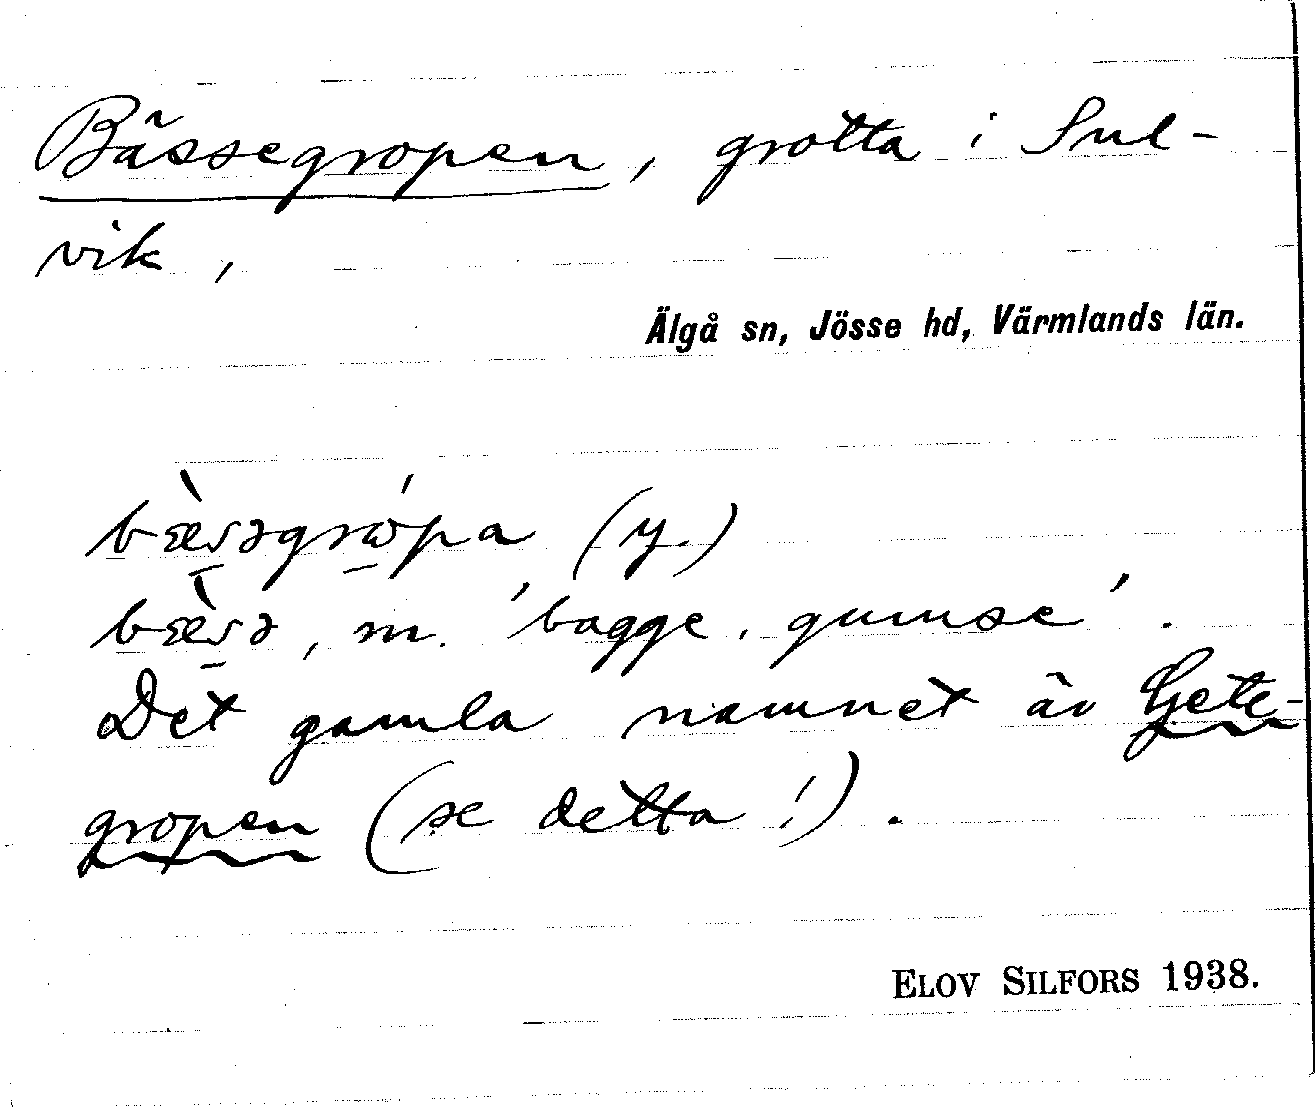 Bässegropen, grotta i Sul-
vik,
Älgå sn, Jösse hd, Värmlands län.
bæ̀səgrɷ́pa (y.)
bæ̀sə, m. 'bagge, gumse'.
Det gamla namnet är Gete-
gropen (se detta!).
ELOV SILFORS 1938.